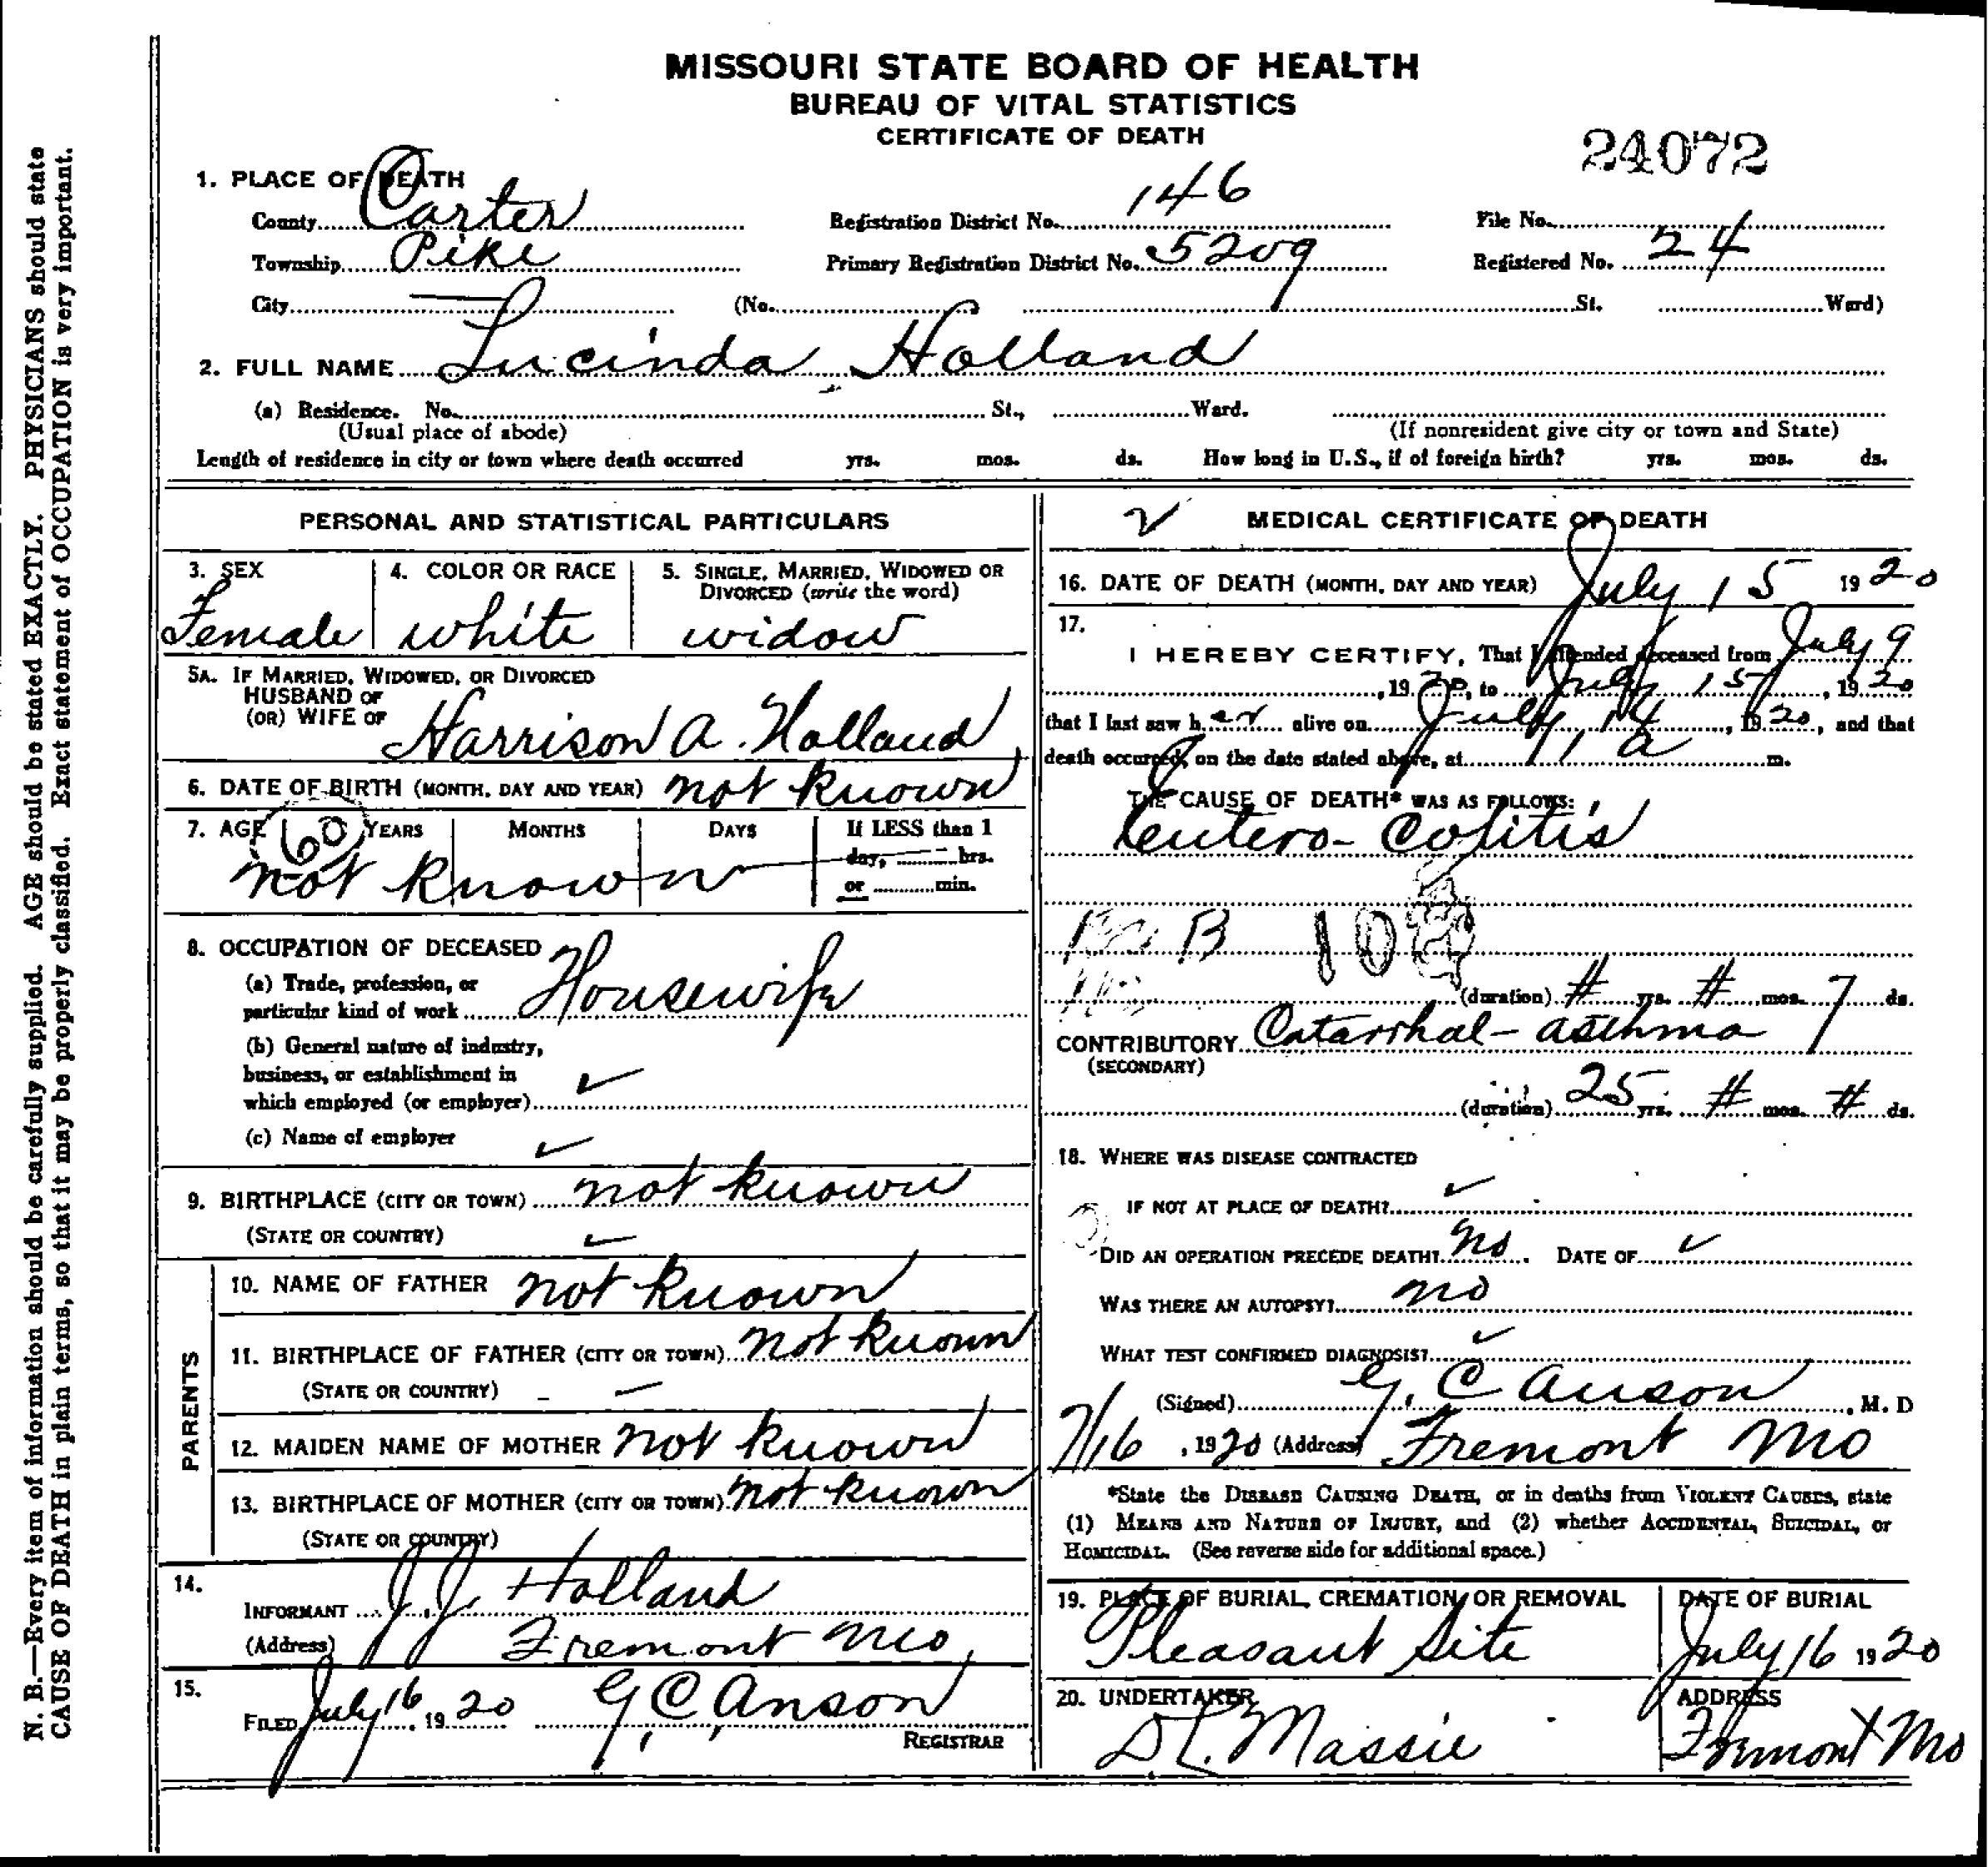 MISSOURI STATE BOARD OF HEALTH
BUREAU OF VITAL STATISTICS
CERTIFICATE OF DEATH
24072
1. PLACE OF DEATH
County Carter Registration District No. 146 File No.
Township Pike Primary Registration District No. 5209 Registered No. 24
City (No. St. Ward)
2. FULL NAME Lucinda Holland
(a) Residence. No. St., Ward.
(Usual place of abode) (If nonresident give city or town and State)
Length of residence in city or town where death occurred yrs. mos. ds. How long in U.S., if of foreign birth? yrs. mos. ds.
PERSONAL AND STATISTICAL PARTICULARS
3. SEX 4. COLOR OR RACE 5. SINGLE, MARRIED, WIDOWED OR
DIVORCED (write the word)
Female white widow
5A. IF MARRIED, WIDOWED, OR DIVORCED
HUSBAND OF
(OR) WIFE OF Harrison A. Holland
6. DATE OF BIRTH (MONTH, DAY AND YEAR) not known
7. AGE 60 YEARS MONTHS DAYS If LESS than 1
day, hrs.
not known or min.
8. OCCUPATION OF DECEASED
(a) Trade, profession, or
particular kind of work Housewife
(b) General nature of industry,
business, or establishment in
which employed (or employer) ✓
(c) Name of employer ✓
9. BIRTHPLACE (CITY OR TOWN) not known
(STATE OR COUNTRY) ✓
PARENTS
10. NAME OF FATHER not known
11. BIRTHPLACE OF FATHER (CITY OR TOWN) not known
(STATE OR COUNTRY) –
12. MAIDEN NAME OF MOTHER not known
13. BIRTHPLACE OF MOTHER (CITY OR TOWN) not known
(STATE OR COUNTRY)
14.
INFORMANT J.J. Holland
(Address) Fremont Mo.
15.
FILED July 16, 1920 G.C. Anson
REGISTRAR
MEDICAL CERTIFICATE OF DEATH
16. DATE OF DEATH (MONTH, DAY AND YEAR) July 15 1920
17.
I HEREBY CERTIFY, That I attended deceased from July 9
, 1920, to July 15, 1920
that I last saw her alive on July 14, 1920, and that
death occurred, on the date stated above, at 11 a m.
THE CAUSE OF DEATH* WAS AS FOLLOWS:
Entero-Colitis
B 10
(duration) # yrs. # mos. 7 ds.
CONTRIBUTORY Catarrhal-asthma
(SECONDARY)
(duration) 25 yrs. # mos. # ds.
18. WHERE WAS DISEASE CONTRACTED
IF NOT AT PLACE OF DEATH? ✓
DID AN OPERATION PRECEDE DEATH? no. DATE OF ✓
WAS THERE AN AUTOPSY? no
WHAT TEST CONFIRMED DIAGNOSIS? ✓
(Signed) G. C Anson, M. D
7/16, 1920 (Address) Fremont Mo
*State the DISEASE CAUSING DEATH, or in deaths from VIOLENT CAUSES, state
(1) MEANS AND NATURE OF INJURY, and (2) whether ACCIDENTAL, SUICIDAL, or
HOMICIDAL. (See reverse side for additional space.)
19. PLACE OF BURIAL, CREMATION, OR REMOVAL DATE OF BURIAL
Pleasant Site July 16 1920
20. UNDERTAKER ADDRESS
D L. Massie Fremont Mo
N. B.—Every item of information should be carefully supplied. AGE should be stated EXACTLY. PHYSICIANS should state
CAUSE OF DEATH in plain terms, so that it may be properly classified. Exact statement of OCCUPATION is very important.